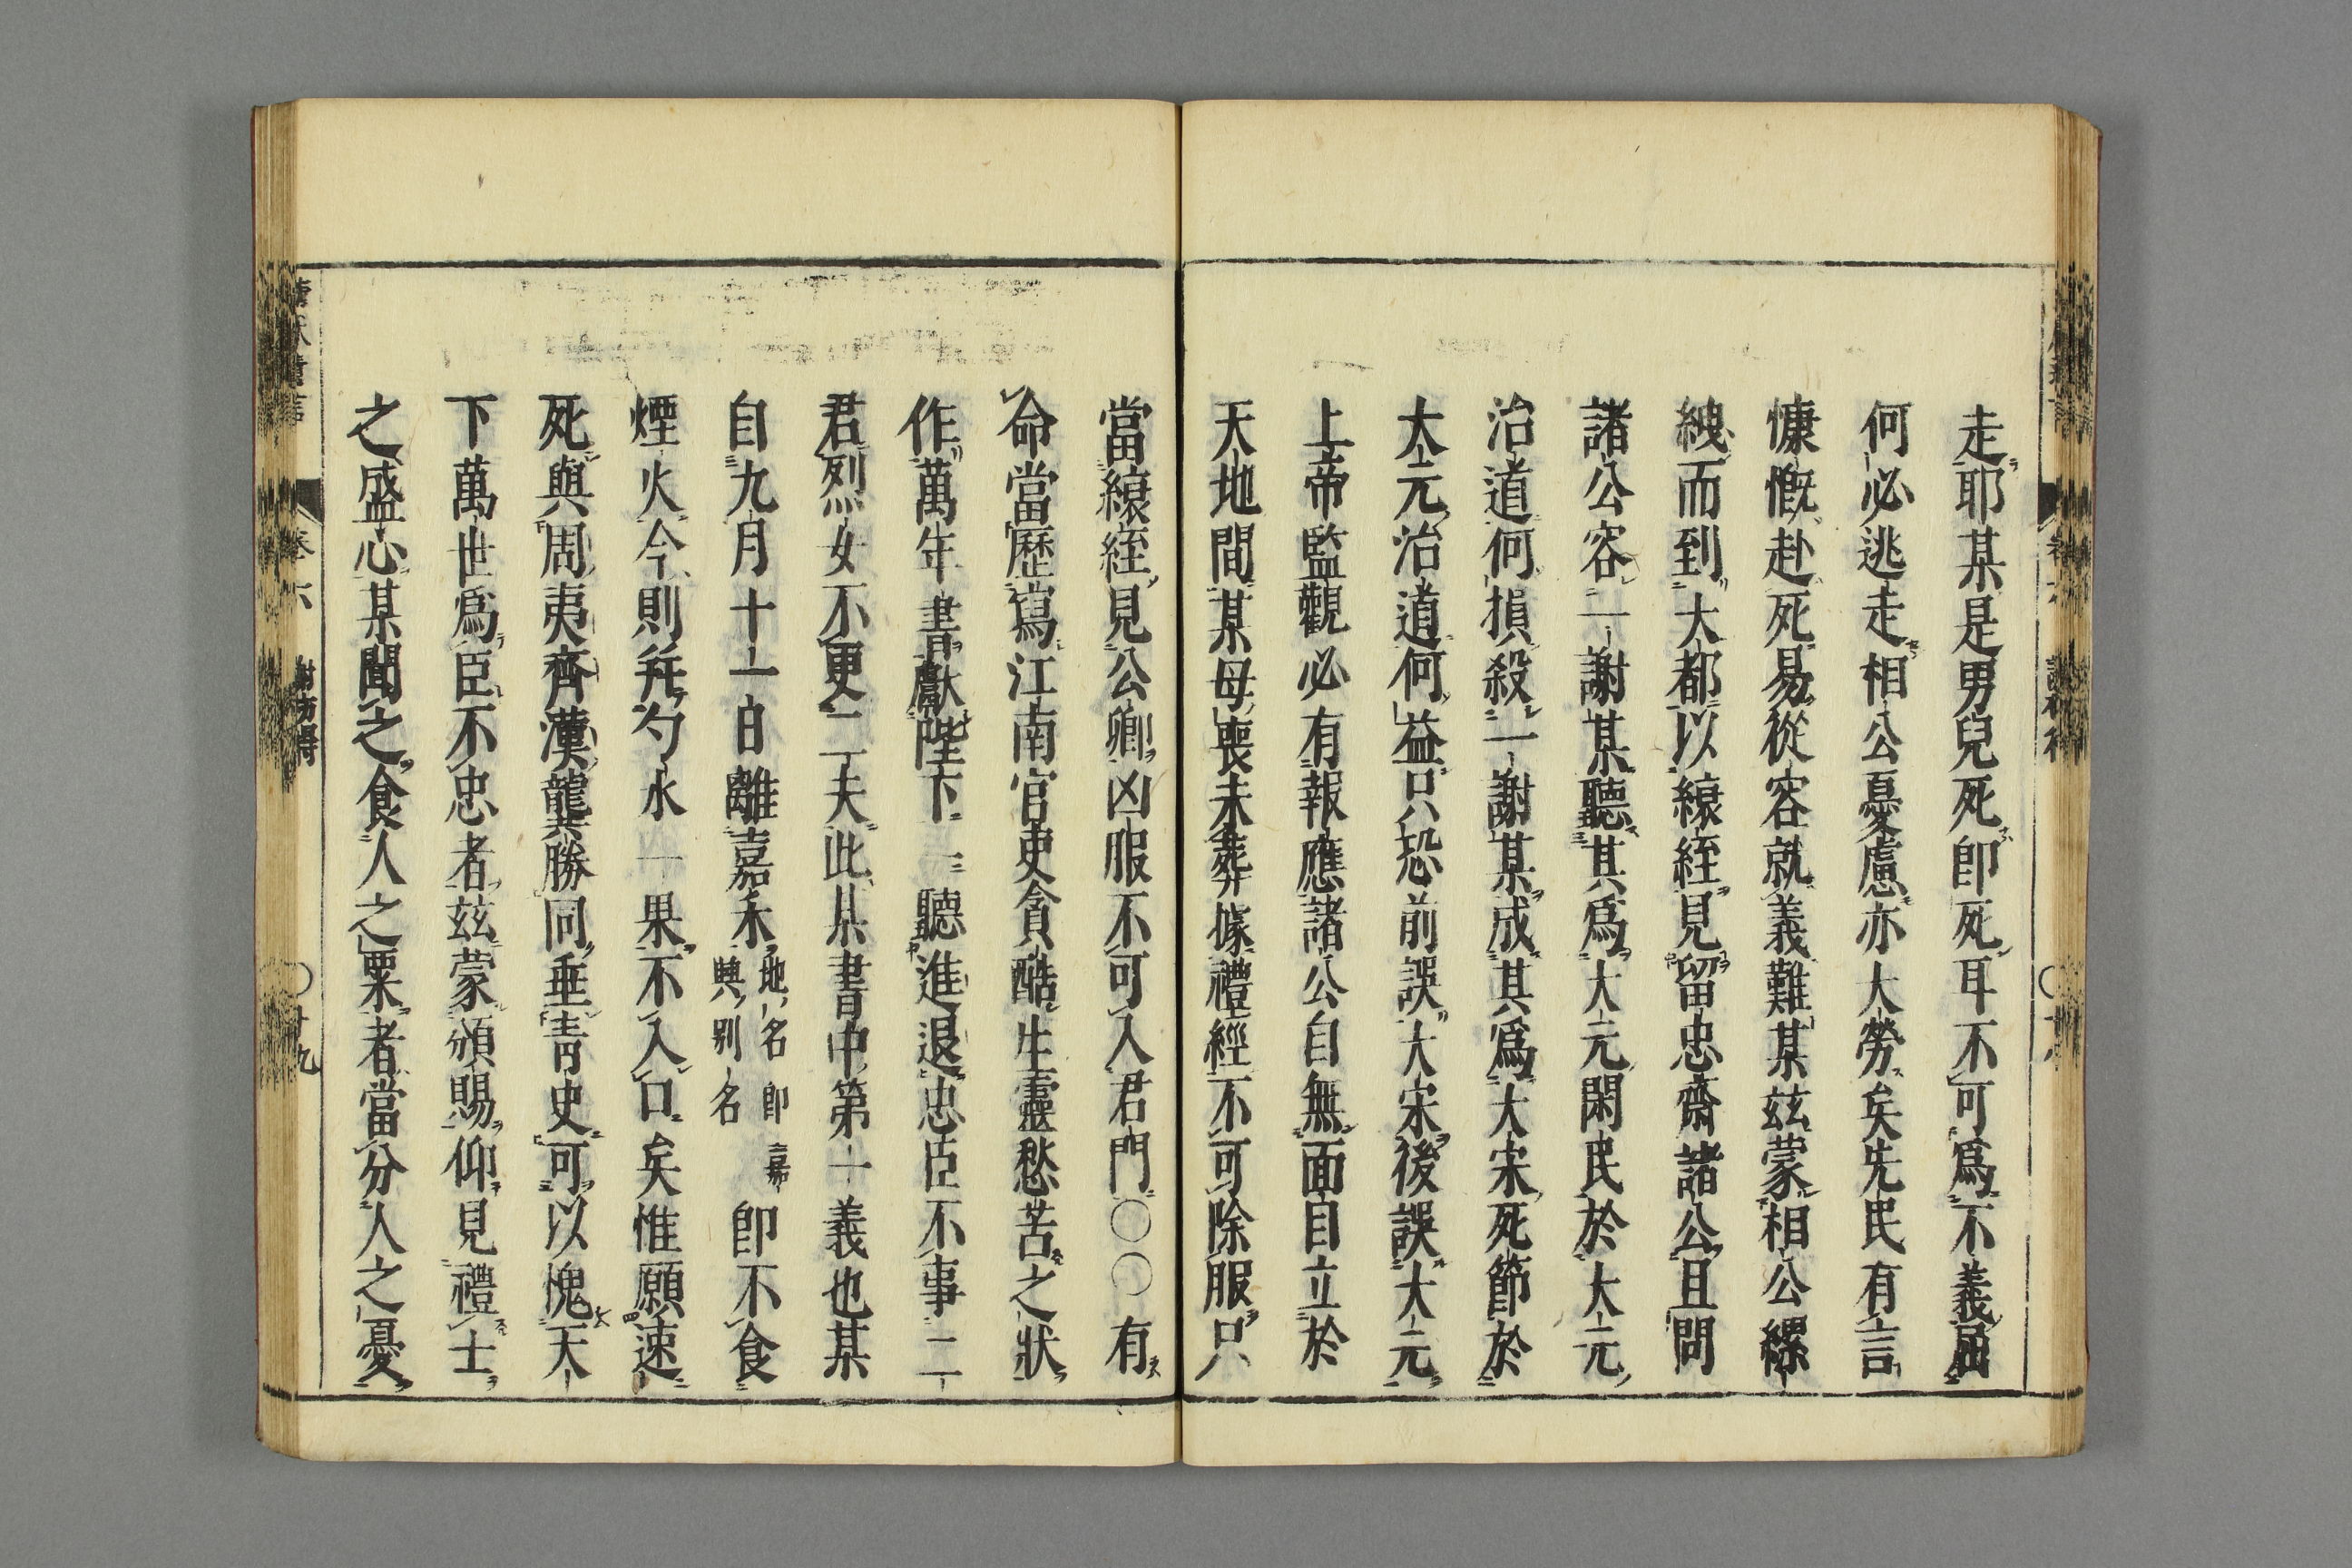 走耶某是男兒死即死耳不可爲不義屈
何必逃走相公憂慮亦大勞矣先民有言
慷慨赴死易從容就義難某玆蒙相公縲
絏而到大都以縗絰見留忠齋諸公且問
諸公容一謝某聽其爲大元閑民於大元
治道何損殺一謝某成其爲大宋死節於
大元治道何益只恐前誤大宋後誤大元
上帝監觀必有報應諸公自無面目立於
天地間某母喪未葬據禮經不可除服只
當縗絰見公卿凶服不可入君門〇〇有
命當歷寫江南官吏貪酷生靈愁苦之狀
作萬年書獻陛下一聽進退忠臣不事二
君烈女不更二夫此某書中第一義也某
自九月十一日離嘉禾地名即嘉興別名即不食
煙火今則幷勺水一果不入口矣惟願速
死與周夷齊漢龔勝同垂青史可以愧天
下萬世爲臣不忠者玆蒙頒賜仰見禮士
之盛心某聞之食人之粟者當分人之憂
卷六 謝枋得 〇廿九